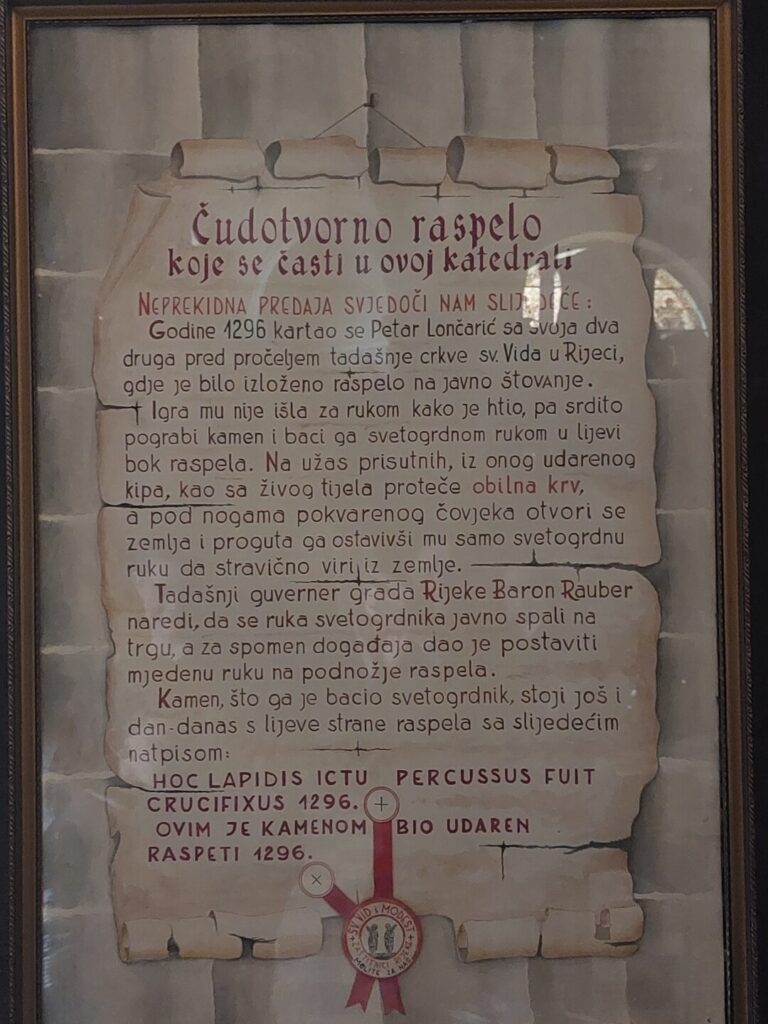 Čudotvorno raspelo
koje se časti u ovoj katedrali
NEPREKIDNA PREDAJA SVJEDOČI NAM SLIJEDEĆE:
Godine 1296 kartao se Petar Lončarić sa svoja dva
druga pred pročeljem tadašnje crkve sv. Vida u Rijeci,
gdje je bilo izloženo raspelo na javno štovanje.
Igra mu nije išla za rukom kako je htio, pa srdito
pograbi kamen i baci ga svetogrdnom rukom u lijevi
bok raspela. Na užas prisutnih, iz onog udarenog
kipa, kao sa živog tijela proteče obilna krv,
a pod nogama pokvarenog čovjeka otvori se
zemlja i proguta ga ostavivši mu samo svetogrdnu
ruku da stravično viri iz zemlje.
Tadašnji guverner grada Rijeke Baron Rauber
naredi, da se ruka svetogrdnika javno spali na
trgu, a za spomen događaja dao je postaviti
mjedenu ruku na podnožje raspela.
Kamen, što ga je bacio svetogrdnik, stoji još i
dan-danas s lijeve strane raspela sa slijedećim
natpisom:
HOC LAPIDIS ICTU PERCUSSUS FUIT
CRUCIFIXUS 1296.
OVIM JE KAMENOM BIO UDAREN
RASPETI 1296.
SV. VID i MODEST
ZAŠTITNICI RIJEKE
MOLITE ZA NAS